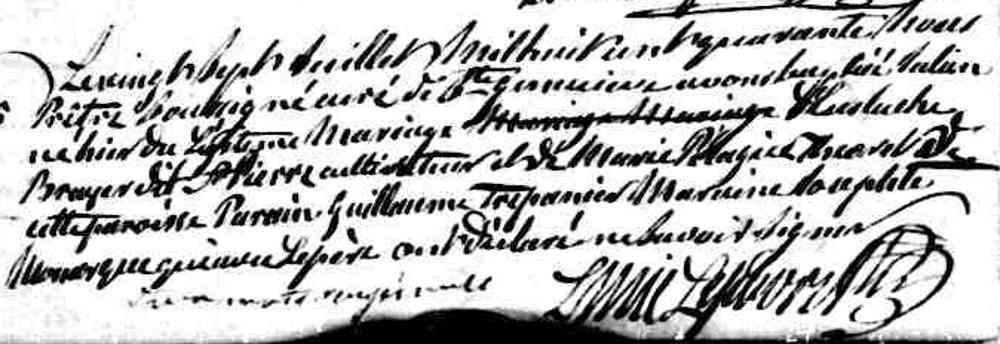 Le vingt Sept Juillet Mil huit cent quarante, Nous
Prêtre Soussigné curé de Ste Genevieve avons baptisé Julien
né hier du Légitime Mariage Eustache
Brayer dit St Pierre cultivateur et de Marie Pélagie de
cette paroisse Parain Guillaume Trepanier Maraine Josephte
qui avec le père ont déclaré ne Savoir Signer
Louis Lefebvre Ptre